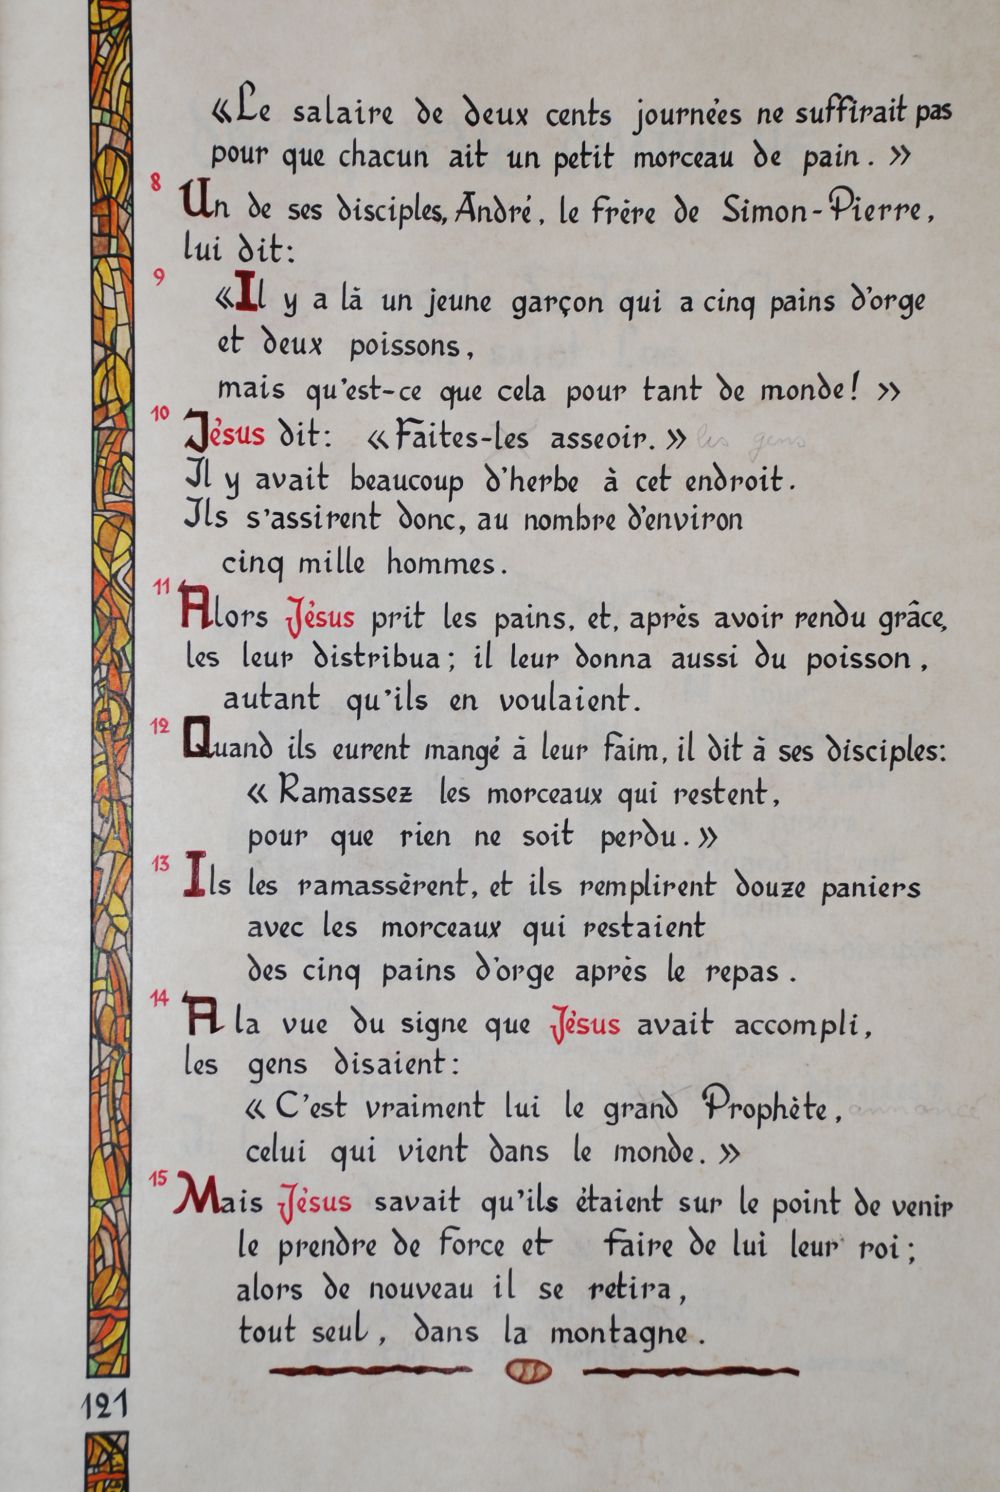 «Le salaire de deux cents journées ne suffirait pas
pour que chacun ait un petit morceau de pain. »
8 Un de ses disciples, André, le frère de Simon-Pierre,
lui dit:
9 «Il y a là un jeune garçon qui a cinq pains d'orge
et deux poissons,
mais qu'est-ce que cela pour tant de monde! »
10 Jésus dit: « Faites-les asseoir. » les gens
Il y avait beaucoup d'herbe à cet endroit.
Ils s'assirent donc, au nombre d'environ
cinq mille hommes.
11 Alors Jésus prit les pains, et, après avoir rendu grâce,
les leur distribua; il leur donna aussi du poisson,
autant qu'ils en voulaient.
12 Quand ils eurent mangé à leur faim, il dit à ses disciples:
« Ramassez les morceaux qui restent,
pour que rien ne soit perdu. »
13 Ils les ramassèrent, et ils remplirent douze paniers
avec les morceaux qui restaient
des cinq pains d'orge après le repas.
14 A la vue du signe que Jésus avait accompli,
les gens disaient:
« C'est vraiment lui le grand Prophète, annoncé
celui qui vient dans le monde. »
15 Mais Jésus savait qu'ils étaient sur le point de venir
le prendre de force et faire de lui leur roi;
alors de nouveau il se retira,
tout seul, dans la montagne.
121